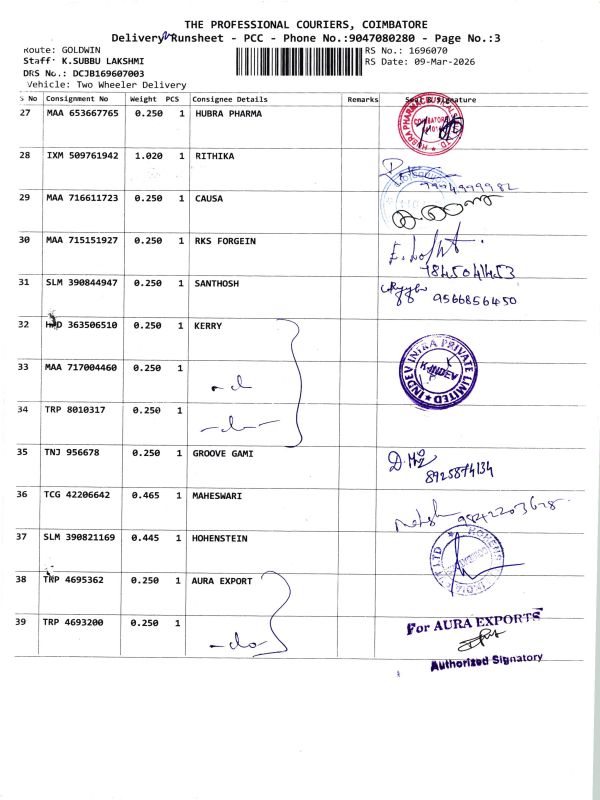 THE PROFESSIONAL COURIERS, COIMBATORE
Delivery Runsheet - PCC - Phone No.:9047080280 - Page No.:3
Route: GOLDWIN RS No.: 1696070
Staff: K.SUBBU LAKSHMI RS Date: 09-Mar-2026
DRS No.: DCJB169607003
Vehicle: Two Wheeler Delivery
S No Consignment No Weight PCS Consignee Details Remarks Seal & Signature
27 MAA 653667765 0.250 1 HUBRA PHARMA
28 IXM 509761942 1.020 1 RITHIKA
29 MAA 716611723 0.250 1 CAUSA
30 MAA 715151927 0.250 1 RKS FORGEIN
7845041453
31 SLM 390844947 0.250 1 SANTHOSH
9566856450
32 363506510 0.250 1 KERRY
33 MAA 717004460 0.250 1 -do
INDEV INFRA PRIVATE LIMITED
K-INDEV
34 TRP 8010317 0.250 1 -do-
35 TNJ 956678 0.250 1 GROOVE GAMI
8925874134
36 TCG 42206642 0.465 1 MAHESWARI
37 SLM 390821169 0.445 1 HOHENSTEIN
38 TRP 4695362 0.250 1 AURA EXPORT
39 TRP 4693200 0.250 1 -do-
For AURA EXPORTS
Authorized Signatory